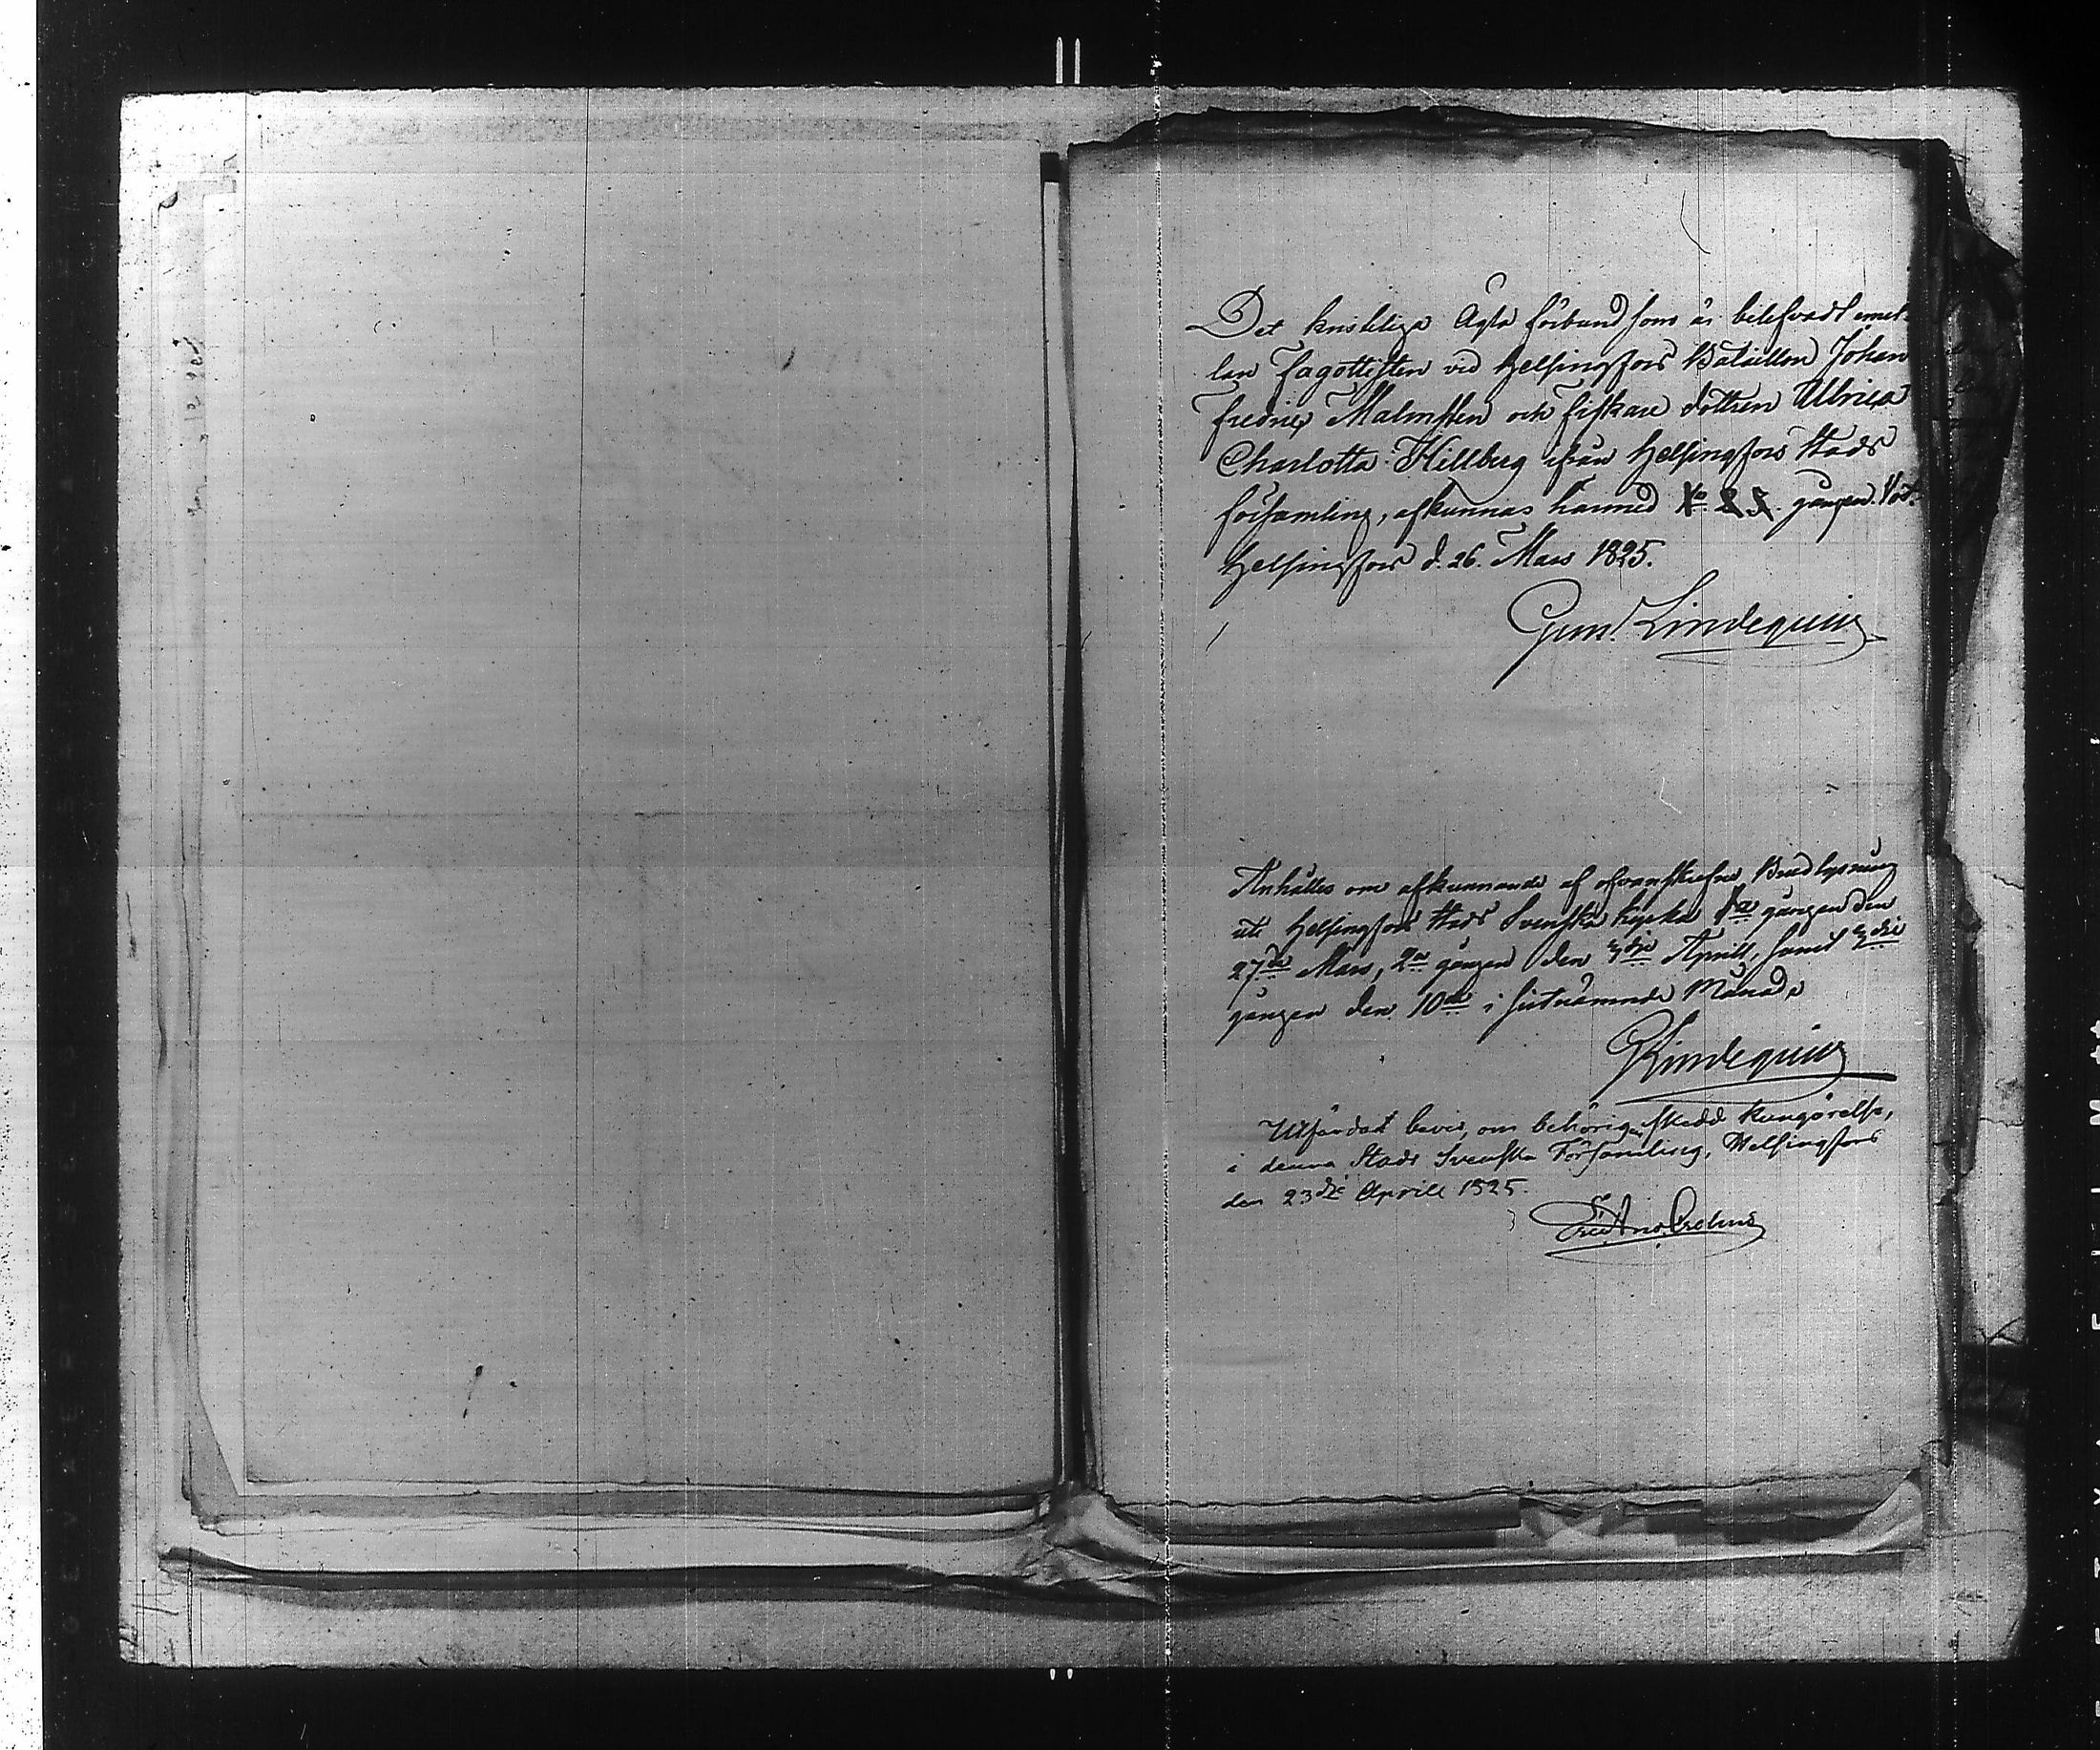 Det kristeliga Ägta förbund som är belefvadt emel-
lan fagottisten vid Helsingfors Bataillon Johan
Fredric Malmsten och fiskare dottren Ulrica
Charlotta Hillberg ifrån Helsingfors Stads
församling, afkunnas härmed 1a 2 3. gången.
Helsingfors d. 26. Mars 1825.
Gust. Lindequist
Anhålles om afkunnande af ofvanskrefne Budlysning
uti Helsingfors Stads Svenska kyrka 1a gången den
27de Mars, 2a gången den 3dje Aprill, samt 3dje
gången den 10de i sistnämnde Månad.
GLindequist
Utfärdat bevis, om behörigen skedd kungörelse,
i denna Stads Svenska Församling, Helsingfors
den 23dje Aprill 1825.